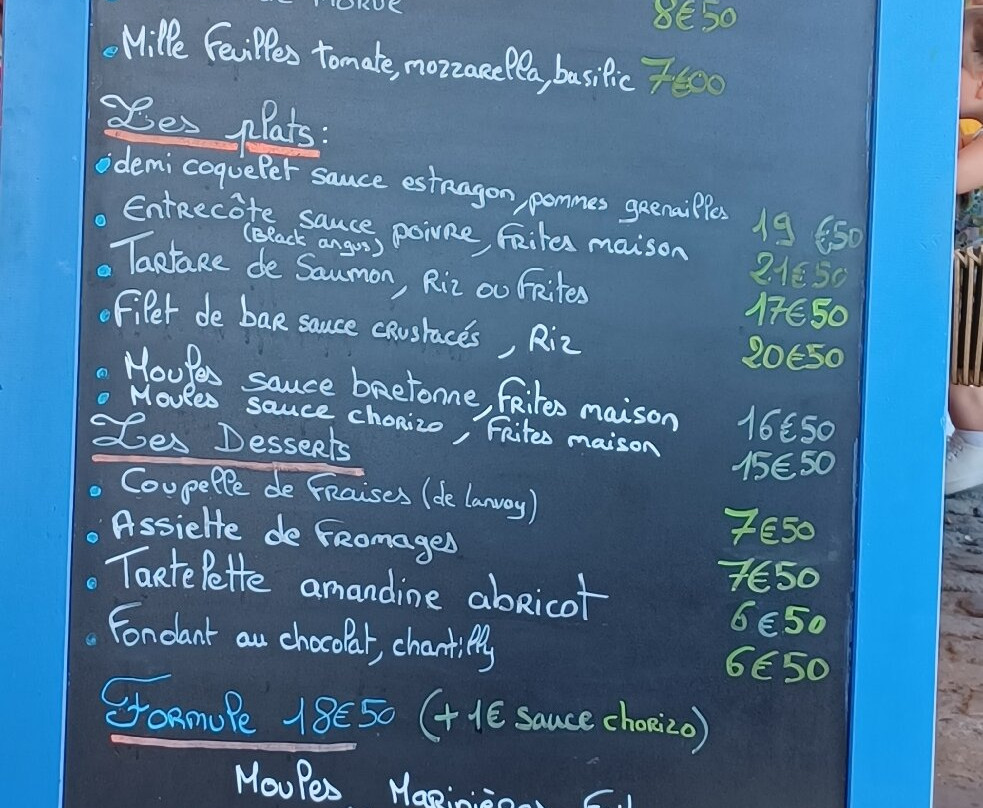 8€50
• Mille Feuilles tomate, mozzarella, basilic 7€00
Les plats:
• demi coquelet sauce estragon, pommes grenailles 19€50
• Entrecôte sauce poivre, Frites maison 21€50
(Black angus)
• Tartare de Saumon, Riz ou Frites 17€50
• Filet de bar sauce crustacés, Riz 20€50
• Moules sauce bretonne, Frites maison 16€50
• Moules sauce chorizo, Frites maison 15€50
Les Desserts
• Coupelle de Fraises (de Lanvoy) 7€50
• Assiette de Fromages 7€50
• Tartelette amandine abricot 6€50
• Fondant au chocolat, chantilly 6€50
Formule 18€50 (+ 1€ sauce chorizo)
Moules Marinières